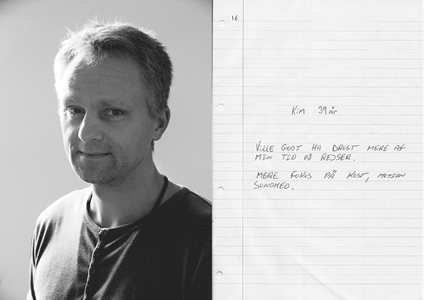 16
KIM 39 ÅR
VILLE GODT HA BRUGT MERE AF
MIN TID PÅ REJSER.
MERE FOKUS PÅ KOST, MOTION
SUNDHED.